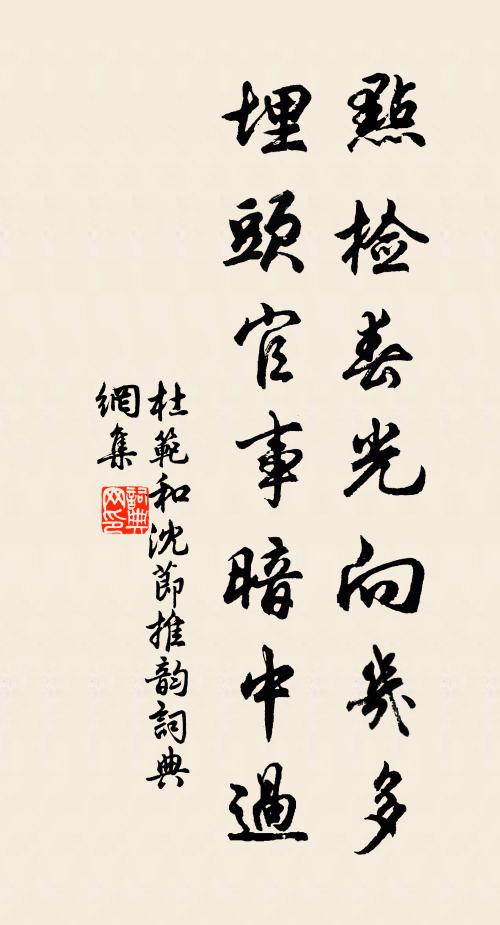 點檢春光向幾多
埋頭官事暗中過
杜範和沈節推韵詞典
網集
詞典
网印